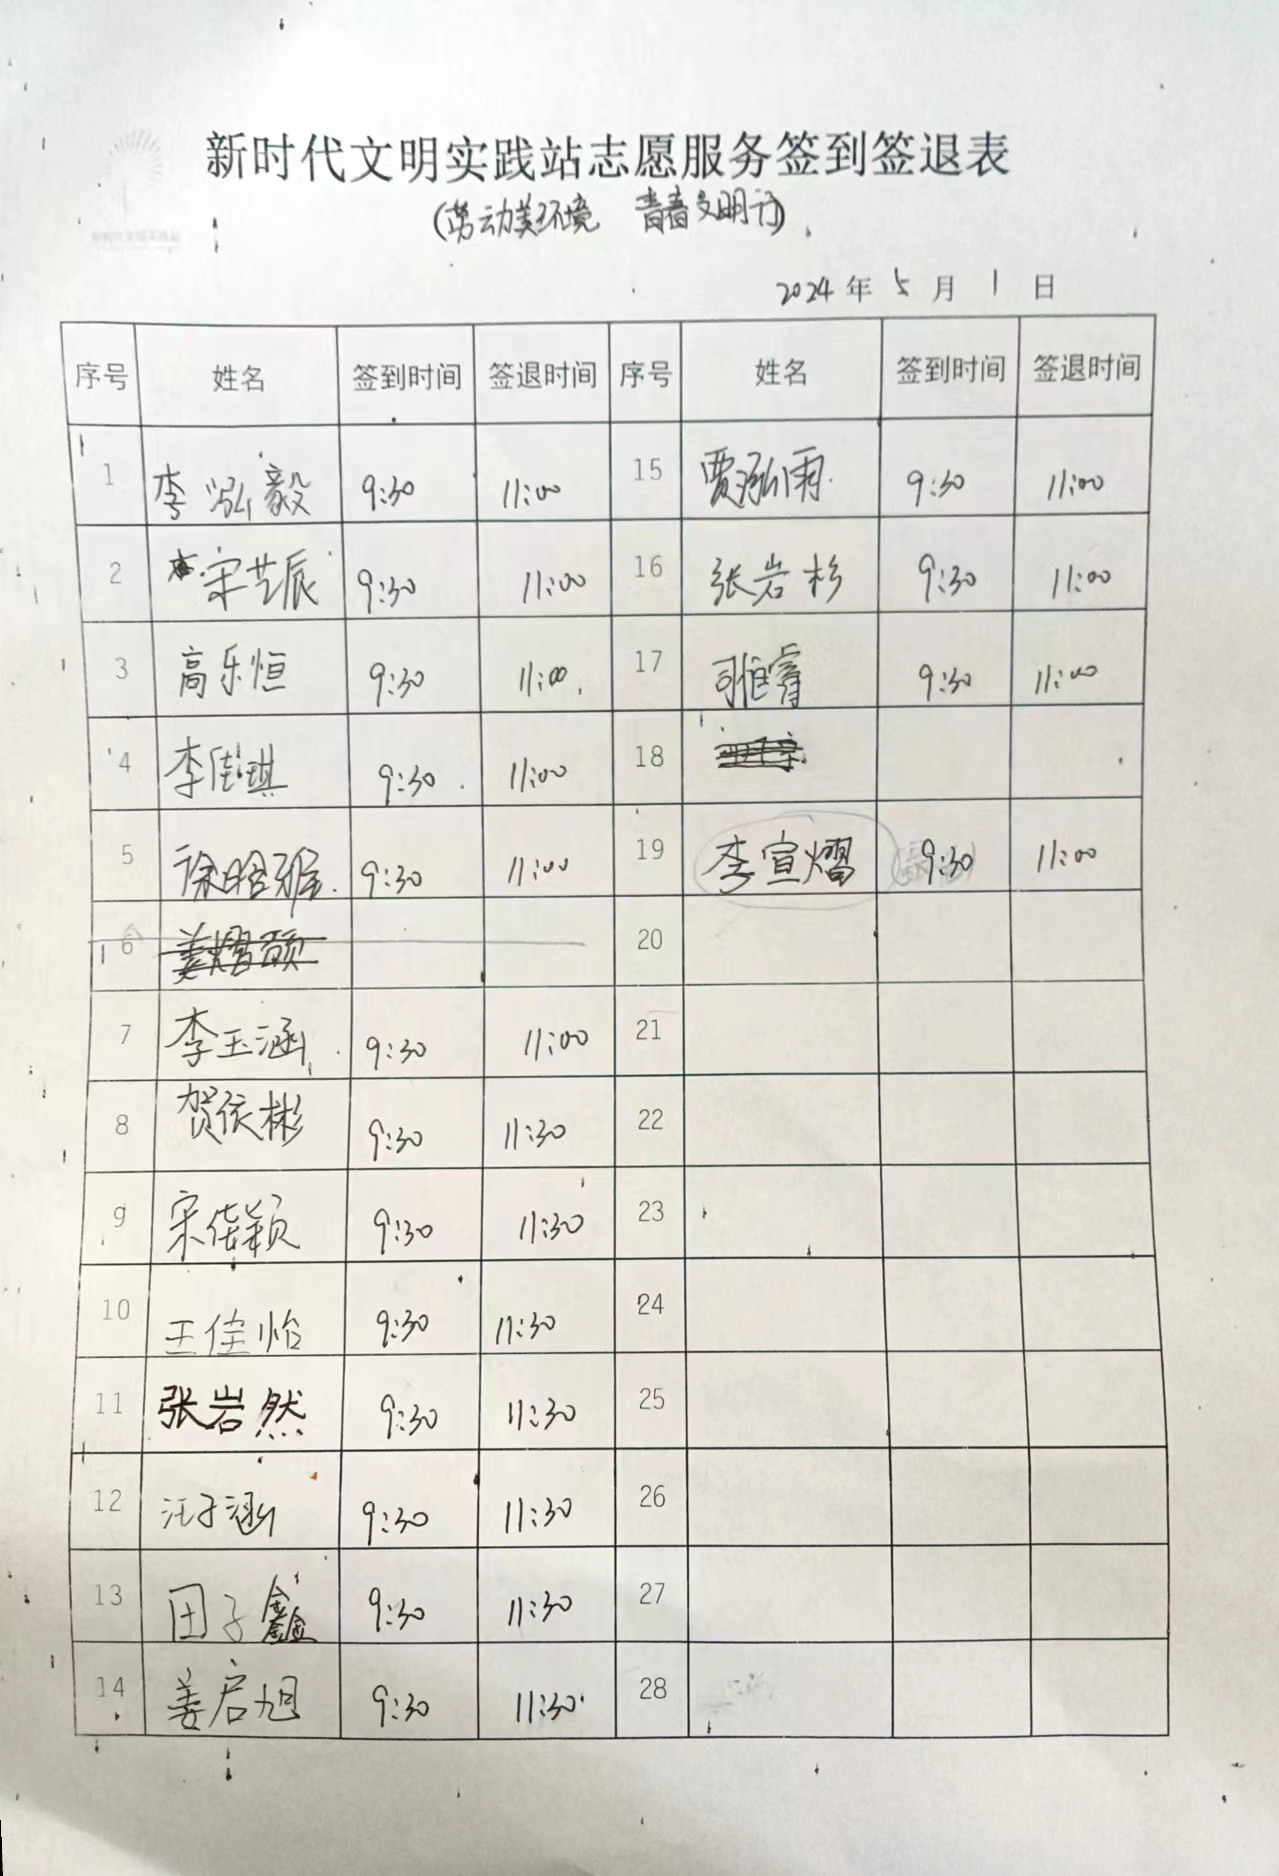 新时代文明实践站志愿服务签到签退表
(劳动美环境 青春文明行)
2024年5月1日
序号 姓名 签到时间 签退时间 序号 姓名 签到时间 签退时间
1 李泓毅 9:30 11:00 15 贾泓雨 9:30 11:00
2 宋艺辰 9:30 11:00 16 张岩杉 9:30 11:00
3 高乐恒 9:30 11:00 17 司雅睿 9:30 11:00
4 李佳琪 9:30 11:00 18
5 徐晗雅 9:30 11:00 19 李宣熠 9:30 11:00
6 20
7 李玉涵 9:30 11:00 21
8 贺依彬 9:30 11:30 22
9 宋佳颖 9:30 11:30 23
10 王佳怡 9:30 11:30 24
11 张岩然 9:30 11:30 25
12 汪子涵 9:30 11:30 26
13 田子鑫 9:30 11:30 27
14 姜启旭 9:30 11:30 28